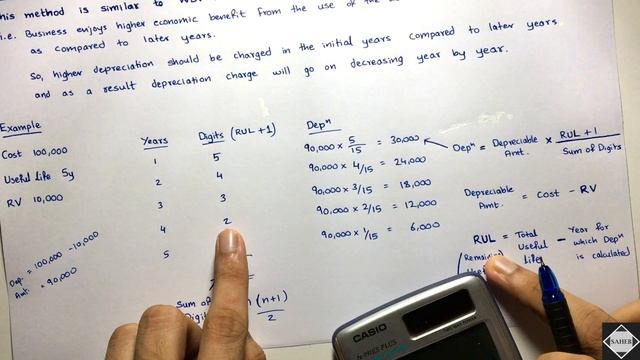 his method is similar to WD
i.e. Business enjoys higher economic benefit from the use of the
as compared to later years.
So, higher depreciation should be charged in the initial years compared to later years
and as a result depreciation charge will go on decreasing year by year.
Example
Cost 100,000
Useful life 5y
RV 10,000
Dep = 100,000 - 10,000
Amt. = 90,000
Years Digits (RUL +1)
1 5
2 4
3 3
4 2
5
Sum of (n+1)
2
Depⁿ
90,000 x 5/15 = 30,000
90,000 x 4/15 = 24,000
90,000 x 3/15 = 18,000
90,000 x 2/15 = 12,000
90,000 x 1/15 = 6,000
Depⁿ = Depreciable Amt. x RUL + 1
Sum of Digits
Depreciable Amt. = Cost - RV
RUL = Total Useful life - Year for which Depⁿ is calculated
CASIO
SAHEB